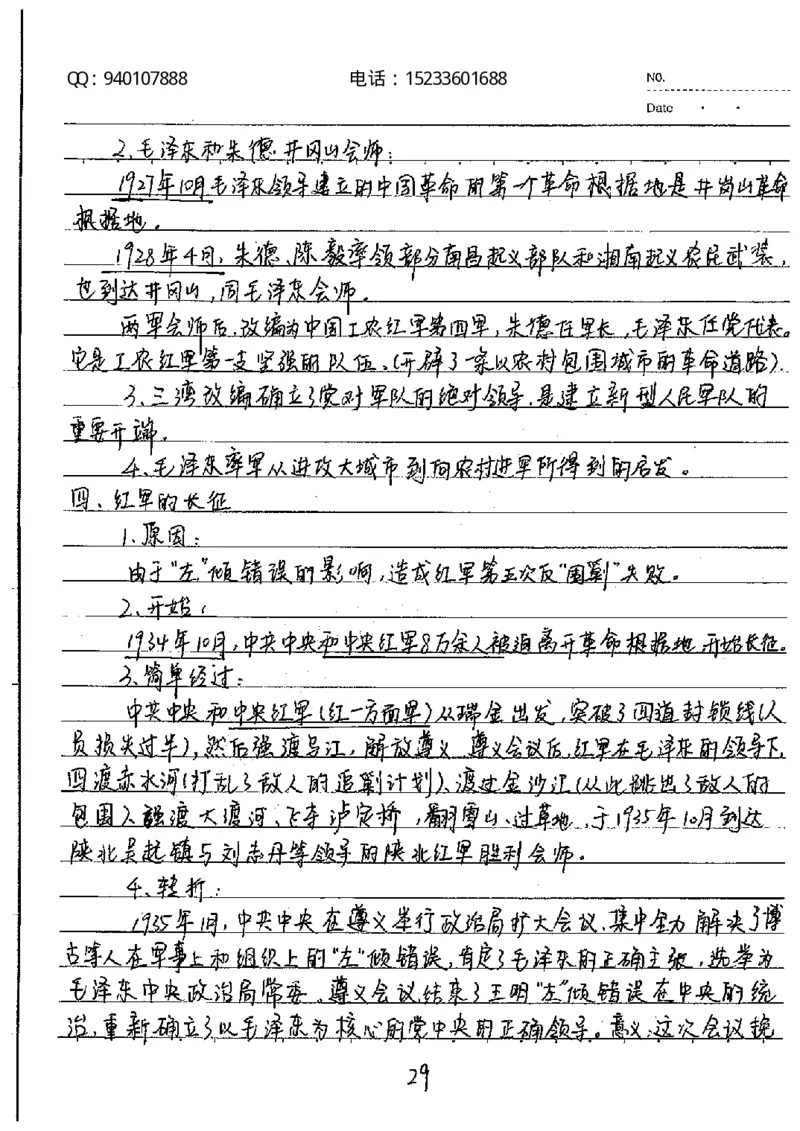 QQ：940107888 电话：15233601688 NO.
Date
2、毛泽东和朱德井冈山会师：
1927年10月毛泽东领导建立的中国革命的第一个革命根据地是井岗山革命
根据地。
1928年4月，朱德、陈毅率领部分南昌起义部队和湘南起义农民武装，
也到达井冈山，同毛泽东会师。
两军会师后，改编为中国工农红军第四军，朱德任军长，毛泽东任党代表。
它是工农红军第一支坚强的队伍、(开辟了一条以农村包围城市的革命道路)．
3、三湾改编确立了党对军队的绝对领导，是建立新型人民军队的
重要开端．
4、毛泽东率军从进攻大城市到向农村进军所得到的启发。
四、红军的长征
1、原因：
由于“左”倾错误的影响，造成红军第五次反“围剿”失败。
2、开始：
1934年10月，中共中央和中央红军8万余人被迫离开革命根据地，开始长征。
3、简单经过：
中共中央和中央红军(红一方面军)从瑞金出发，突破了四道封锁线(人
员损失过半)，然后强渡乌江，解放遵义 遵义会议后，红军在毛泽东的领导下，
四渡赤水河(打乱了敌人的追剿计划)、渡过金沙江(从此跳出了敌人的
包围)、强渡大渡河、飞夺泸定桥，翻雪山、过草地，于1935年10月到达
陕北吴起镇与刘志丹等领导的陕北红军胜利会师。
4、转折：
1935年1月，中共中央在遵义举行政治局扩大会议、集中全力解决了博
古等人在军事上和组织上的“左”倾错误，肯定了毛泽东的正确主张，选举为
毛泽东中央政治局常委、遵义会议结束了王明“左”倾错误在中央的统
治，重新确立了以毛泽东为核心的党中央的正确领导。意义：这次会议挽
29